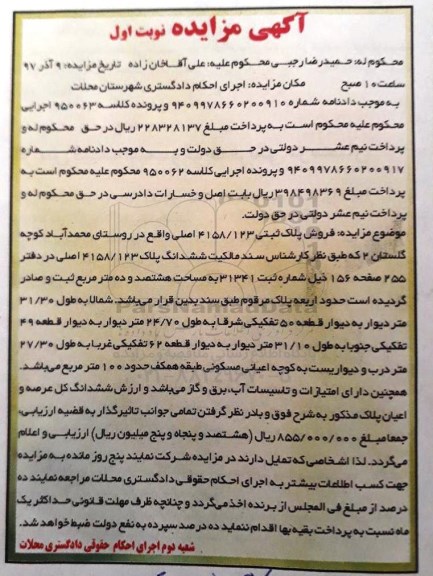 آگهی مزایده نوبت اول
محکوم له: حمیدرضا رجبی محکوم علیه: علی آقاخان زاده تاریخ مزایده: ۹ آذر ۹۷
ساعت ۱۰ صبح مکان مزایده: اجرای احکام دادگستری شهرستان محلات
به موجب دادنامه شماره ۹۴۰۹۹۷۸۶۶۰۲۰۰۹۱۰ و پرونده کلاسه ۹۵۰۰۶۳ اجرایی
محکوم علیه محکوم است به پرداخت مبلغ ۲۲۸۳۲۸۱۳۷ ریال در حق محکوم له و
پرداخت نیم عشر دولتی در حق دولت و به موجب دادنامه شماره
۹۴۰۹۹۷۸۶۶۰۲۰۰۹۱۷ و پرونده اجرایی کلاسه ۹۵۰۰۶۲ محکوم علیه محکوم است به
پرداخت مبلغ ۳۹۸۴۹۸۳۶۹ ریال بابت اصل و خسارات دادرسی در حق محکوم له و
پرداخت نیم عشر دولتی در حق دولت.
موضوع مزایده: فروش پلاک ثبتی ۴۱۵۸/۱۲۳ اصلی واقع در روستای محمدآباد کوچه
گلستان ۴ که طبق نظر کارشناس سند مالکیت ششدانگ پلاک ۴۱۵۸/۱۲۳ اصلی در دفتر
۲۵۵ صفحه ۱۵۶ ذیل شماره ثبت ۳۱۳۴۱ به مساحت هشتصد و ده متر مربع ثبت و صادر
گردیده است حدود اربعه پلاک مرقوم طبق سند بدین قرار می‌باشد. شمالا به طول ۳۱/۳۰
متر دیوار به دیوار قطعه ۵۰ تفکیکی شرقا به طول ۲۴/۷۰ متر دیوار به دیوار قطعه ۴۹
تفکیکی جنوبا به طول ۳۱/۱۰ متر دیوار به دیوار قطعه ۶۲ تفکیکی غربا به طول ۲۷/۳۰
متر درب و دیواریست به کوچه اعیانی مسکونی طبقه همکف حدود ۱۰۰ متر مربع می‌باشد.
همچنین دارای امتیازات و تاسیسات آب، برق و گاز می‌باشد و ارزش ششدانگ کل عرصه و
اعیان پلاک مذکور به شرح فوق و با در نظر گرفتن تمامی جوانب تاثیرگذار به قضیه ارزیابی،
جمعا مبلغ ۸۵۵/۰۰۰/۰۰۰ ریال (هشتصد و پنجاه و پنج میلیون ریال) ارزیابی و اعلام
می‌گردد. لذا اشخاصی که تمایل دارند در مزایده شرکت نمایند پنج روز مانده به مزایده
جهت کسب اطلاعات بیشتر به اجرای احکام حقوقی دادگستری محلات مراجعه نمایند ده
درصد از مبلغ فی المجلس از برنده اخذ می‌گردد و چنانچه ظرف مهلت قانونی حداکثر یک
ماه نسبت به پرداخت بقیه بها اقدام ننماید ده درصد سپرده به نفع دولت ضبط خواهد شد.
شعبه دوم اجرای احکام حقوقی دادگستری محلات